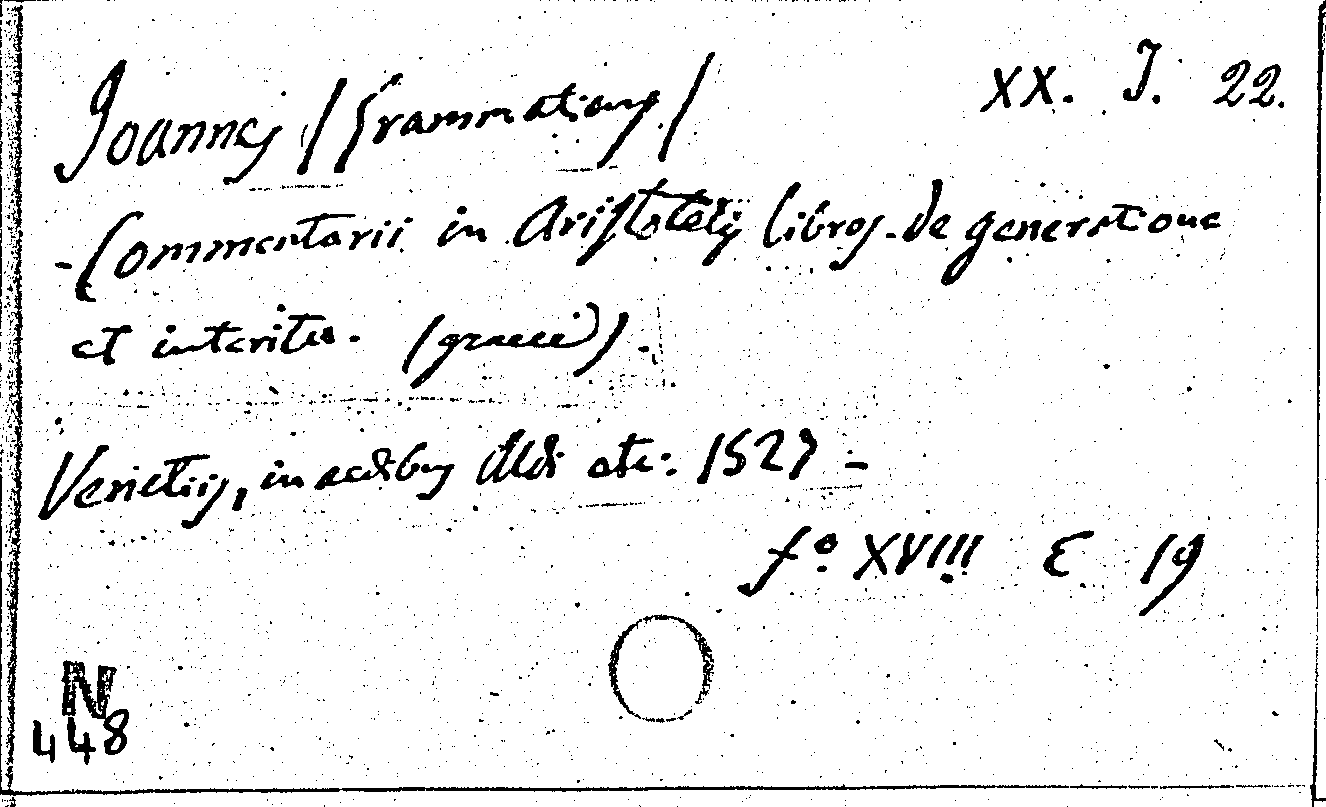 Joannes (Grammaticus) XX. J. 22.
- Commentarii in Aristotelis libros de generatione
et interitu. (graece).
Venetiis, in aedibus Aldi etc. 1527 -
fº XVIII E 19
N
448